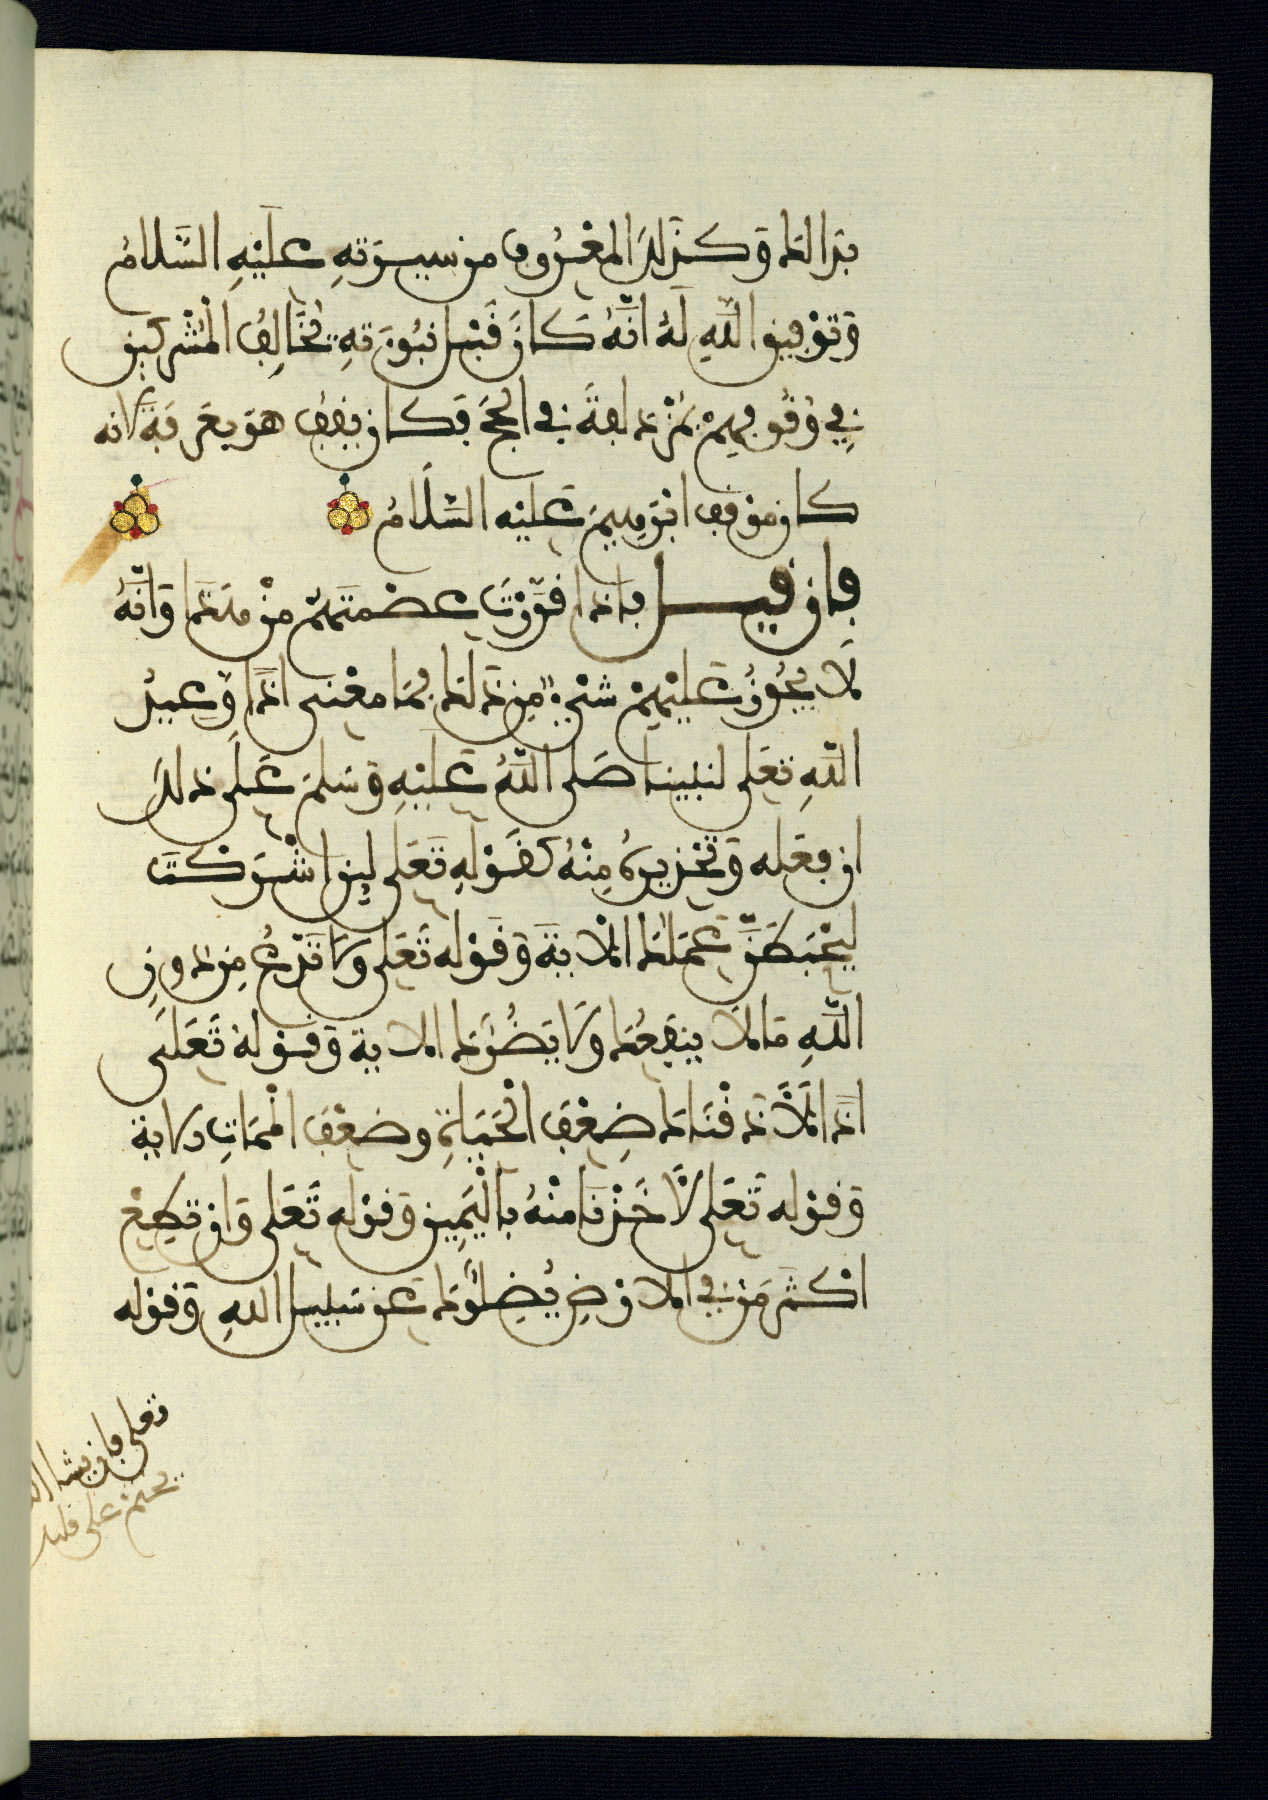 بذالك وكذلك المعروف من سيرته عليه السلام
وتوفيق الله له انه كان قبل نبوته يخالف المشركين
في وقوفهم بمزدلفة في الحج فكان يقف هو بعرفة لانه
كان موقف ابرهيم عليه السلام
فان قيل فاذا قررت عصمتهم من هذا وانه
لا يجوز عليهم شيء من ذلك فما معنى اذا وعيد
الله تعلى لنبينا صلى الله عليه وسلم على ذلك
ان فعله وتحذيره منه كقوله تعلى لين اشركت
ليحبطن عملك الاية وقوله تعلى ولا تدع من دون
الله ما لا ينفعك ولا يضرك الاية وقوله تعلى
اذا لاذقناك ضعف الحيوة وضعف الممات الاية
وقوله تعلى لاخذنا منه باليمين وقوله تعلى وان تطع
اكثر من في الارض يضلوك عن سبيل الله وقوله
تعلى فان يشا الله
يختم على قلبك